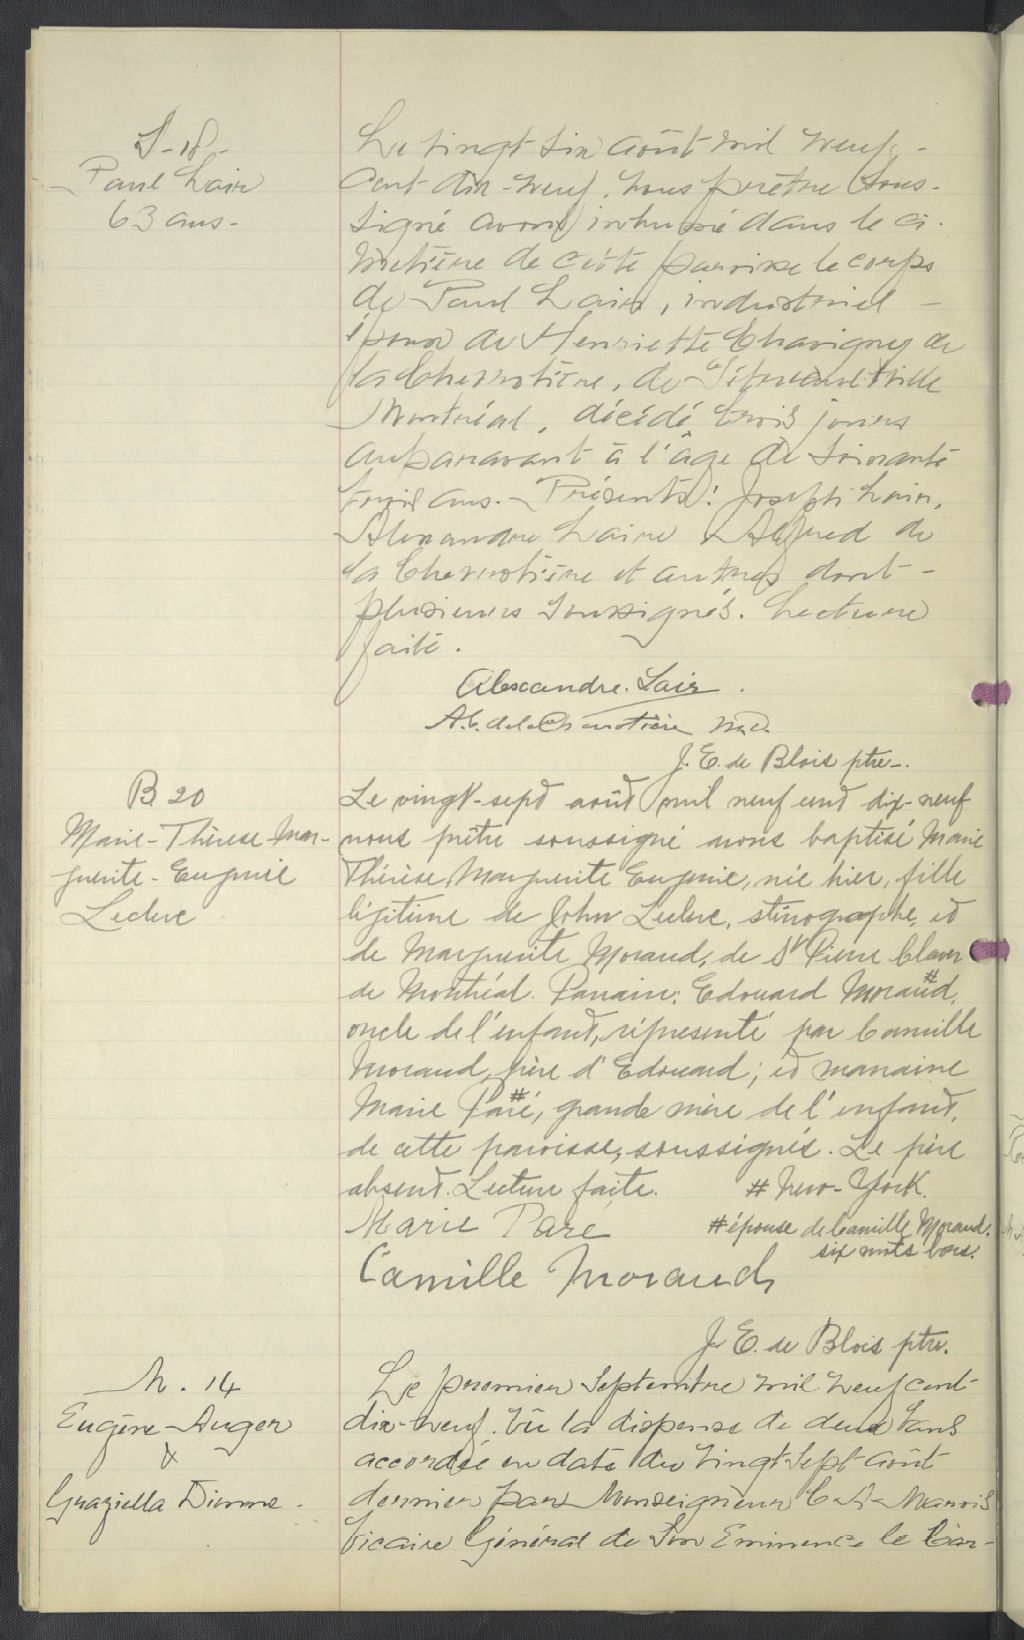 S-18-
Paul Lair
63 ans-
Le vingt six août mil neuf-
cent dix-neuf, nous prêtre sous-
signé avons inhumé dans le ci-
metière de cette paroisse le corps
de Paul Lair, industriel -
époux de Henriette Chavigny de
la Chevrotière, de
Montréal, décédé trois jours
auparavant à l'âge de soixante
trois ans. - Présents: Joseph Lair,
Alexandre Laire & Alfred de
la Chevrotière et autres dont -
plusieurs soussignés. Lecture
faite.
Alexandre Lair.
A.C. de la Chevrotière M.D.
J. E. de Blois ptre-.
B. 20
Marie-Thérèse-Mar-
guerite-Eugénie
Leclerc
Le vingt-sept août mil neuf cent dix-neuf
nous prêtre soussigné avons baptisé Marie
Thérèse Marguerite Eugénie, née hier, fille
légitime de John Leclerc, sténographe, et
de Marguerite Morand, de St Pierre Claver
de Montréal. Parrain: Edouard Morand, #
oncle de l'enfant, représenté par Camille
Morand, père d'Edouard; et marraine
Marie Paré, # grande mère de l'enfant,
de cette paroisse, soussignés. Le père
absent. Lecture faite. # New-York.
Marie Paré # épouse de Camille Morand.
six mots bons.
Camille Morand
J. E. de Blois ptre.
M. 14
Eugène Auger
&
Graziella Dionne.
Le premier septembre mil neuf cent
dix-neuf. Vu la dispense de deux bans
accordée en date du vingt-sept août
dernier par Monseigneur C-A- Marois
Vicaire Général de Son Eminence le Car-